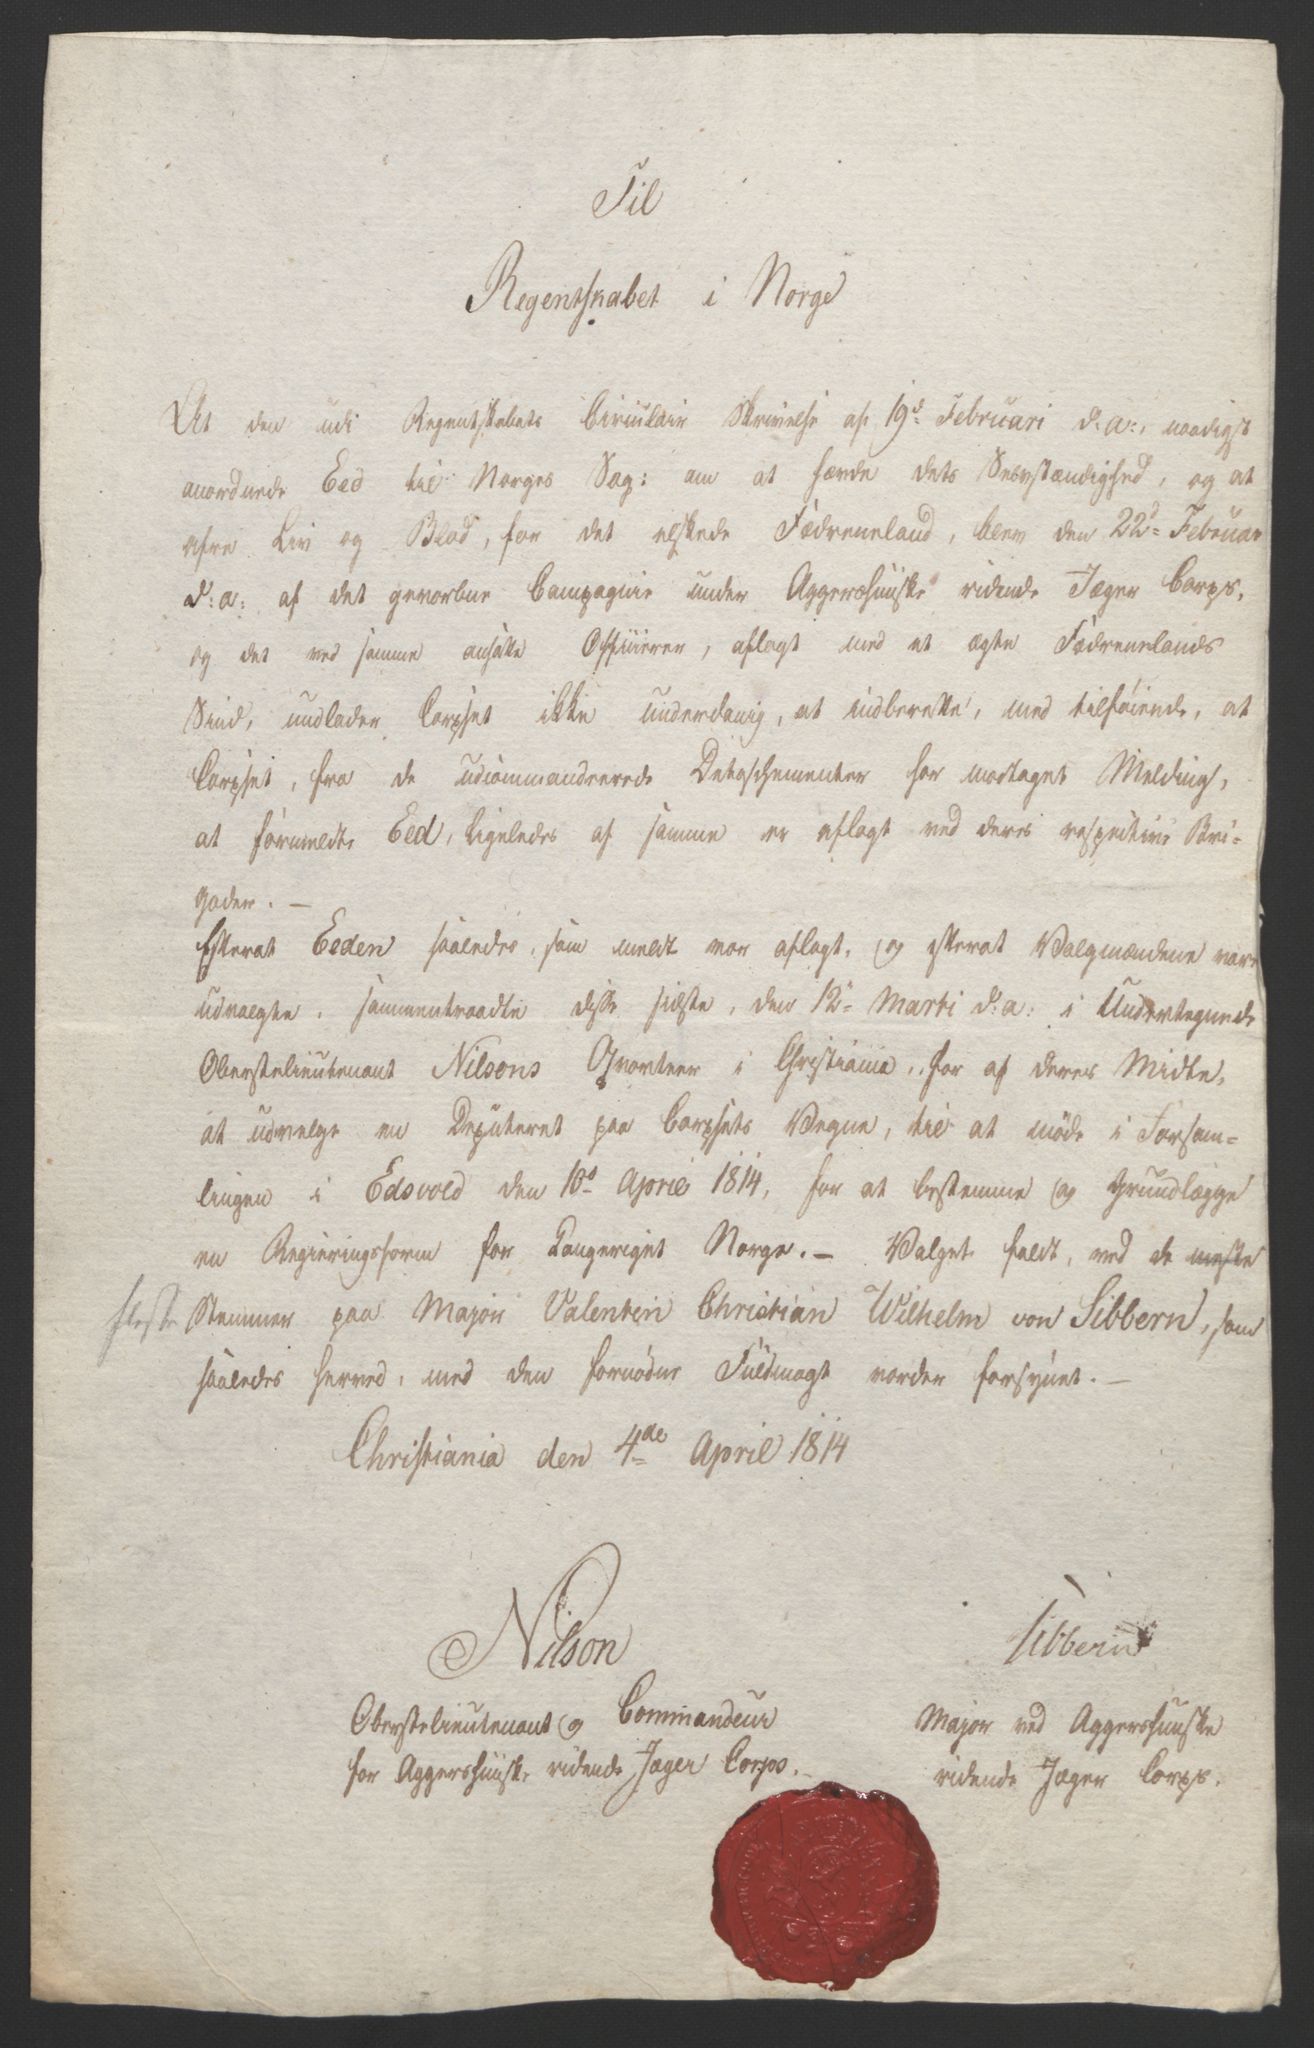 Til
Regentskabet i Norge
At den udi Regentskabets Circulair Skrivelse af 19d Februari d: a:, naadigst
anordnede Eed til Norges Sag: om at hævde dets Selvstændighed, og at
ofre Liv og Blod, for det elskede Fædreneland, blev den 22d Februar
d: a: af det gevorbne Compagnie under Aggershuuske ridende Jæger Corps,
og det ved samme ansatte Officierer, aflagt med et ægte Fædrenelands
Sind, undlader Corpset ikke underdanig, at indberette, med tilføiende, at
Corpset, fra de udcommanderede Detaschementer har modtaget Melding,
at formeldte Eed, ligeledes af samme er aflagt ved deres respective Bri-
gader. —
Efterat Eeden saaledes, som meldt var aflagt, og efterat Valgmændene vare
udvalgte, sammentraadte disse sidste, den 12te Marti d: a: i Undertegnede
Oberstelieutenant Nilsons Qvarteer i Christiania, for af deres Midte,
at udvelge en Deputeret paa Corpsets Vegne, til at møde i Forsam-
lingen i Edsvold den 10d April 1814, for at bestemme og Grundlægge
en Regieringsform for Kongeriget Norge. — Valget faldt, ved de meste
fleste Stemmer paa Major Valentin Christian Wilhelm von Sibbern, som
saaledes herved, med den fornødne Fuldmagt vorder forsynet. —
Christiania den 4de April 1814
Nilson
Oberstelieutenant og Commandeur
for Aggershuuske ridende Jæger Corps.
Sibbern
Major ved Aggershuuske
ridende Jæger Corps.